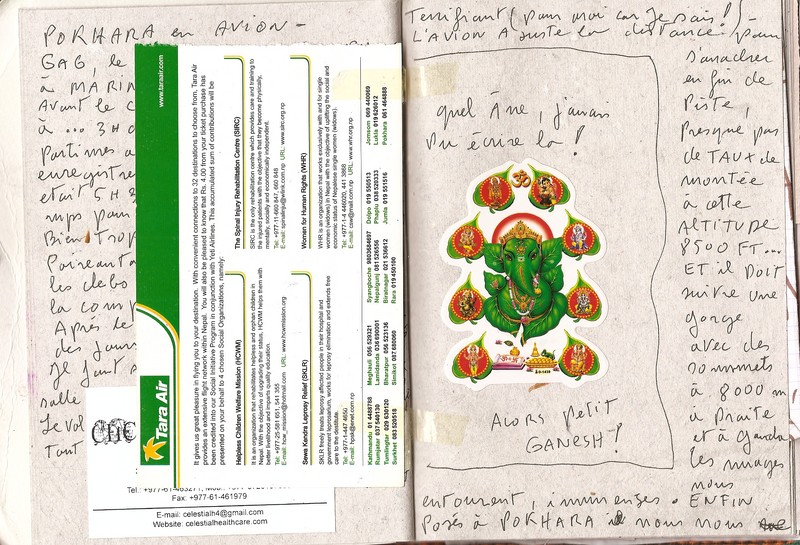 POKHARA en AVION -
GAG, le
à MARIN
Avant le c
à ... 3H
Partimes a
enregistre
etait 5H
mps pour
Bien trop
Poireauta
les de bo
la comp
Après le
des jours
Je fait a
nalle
Le Vol
Tant
CHC
www.taraair.com
It gives us great pleasure in flying you to your destination. With convenient connections to 32 destinations to choose from, Tara Air
provides an extensive flight network within Nepal. You will also be pleased to know that Rs. 4.00 from your ticket purchase has
been credited into our Social Initiative Program in conjunction with Yeti Airlines. This accumulated sum of contributions will be
presented on your behalf to 4 chosen Social Organizations, namely:
Helpless Children Welfare Mission (HCWM)
It is an organization that rehabilitates helpless and orphan children in
Nepal. With the objective of upgrading their status, HCWM helps them with
better livelihood and imparts quality education.
Tel: +977-25-581 651, 541 355
E-mail: hcw_mission@hotmail.com URL: www.hcwmission.org
The Spinal Injury Rehabilitation Centre (SIRC)
SIRC is the only rehabilitation centre which provides care and training to
the injured patients with the objective that they become physically,
mentally, socially and economically independent.
Tel: +977-11-660 847, 660 848
E-mail: spinalinju@wlink.com.np URL: www.sirc.org.np
Sewa Kendra Leprosy Relief (SKLR)
SKLR freely treats leprosy affected people in their hospital and
government leprosarium, works for leprosy elimination and extends free
care to the destitute.
Tel: +977-1-447 4650
E-mail: hpsk@enet.com.np
Women for Human Rights (WHR)
WHR is an organization that works exclusively with and for single
women (widows) in Nepal with the objective of uplifting the social and
economic status of Nepalese single women (widows).
Tel: +977-1-4 446020, 441 3868
E-mail: csw@mail.com.np URL: www.whr.org.np
Kathmandu 01 4488788 Meghauli 056 529321 Syangboche 9803684697 Dolpo 019 550513 Jomsom 069 440069
Rumjatar 037 540139 Lamidanda 036 690001 Nepalgunj 081 526556 Phaplu 038 520333 Lukla 019 626012
Tumlingtar 029 630120 Bharatpur 056 523136 Biratnagar 021 536612 Jumla 019 551516 Pokhara 061 464888
Surkhet 083 520518 Simikot 087 680060 Rara 019 450100
Tara Air
Fax: +977-61-461979
E-mail: celestialh4@gmail.com
Website: celestialhealthcare.com
Terrifiant (pour moi car je sais!)
L'AVION A juste la distance pour
s'arracher
en fin de
Piste
Presque pas
de TAUX de
montée
à cette
ALTITUDE
8500 FT...
ET il DOIT
suivre une
gorge
avec des
sommets
à 8000 m
à Droite
et à gauche
les nuages
nous
entourent, immenses. ENFIN
Posés à POKHARA nous nous
quel Âne, j'aurais
Du écrire là!
ॐ
ALORS petit
GANESH!